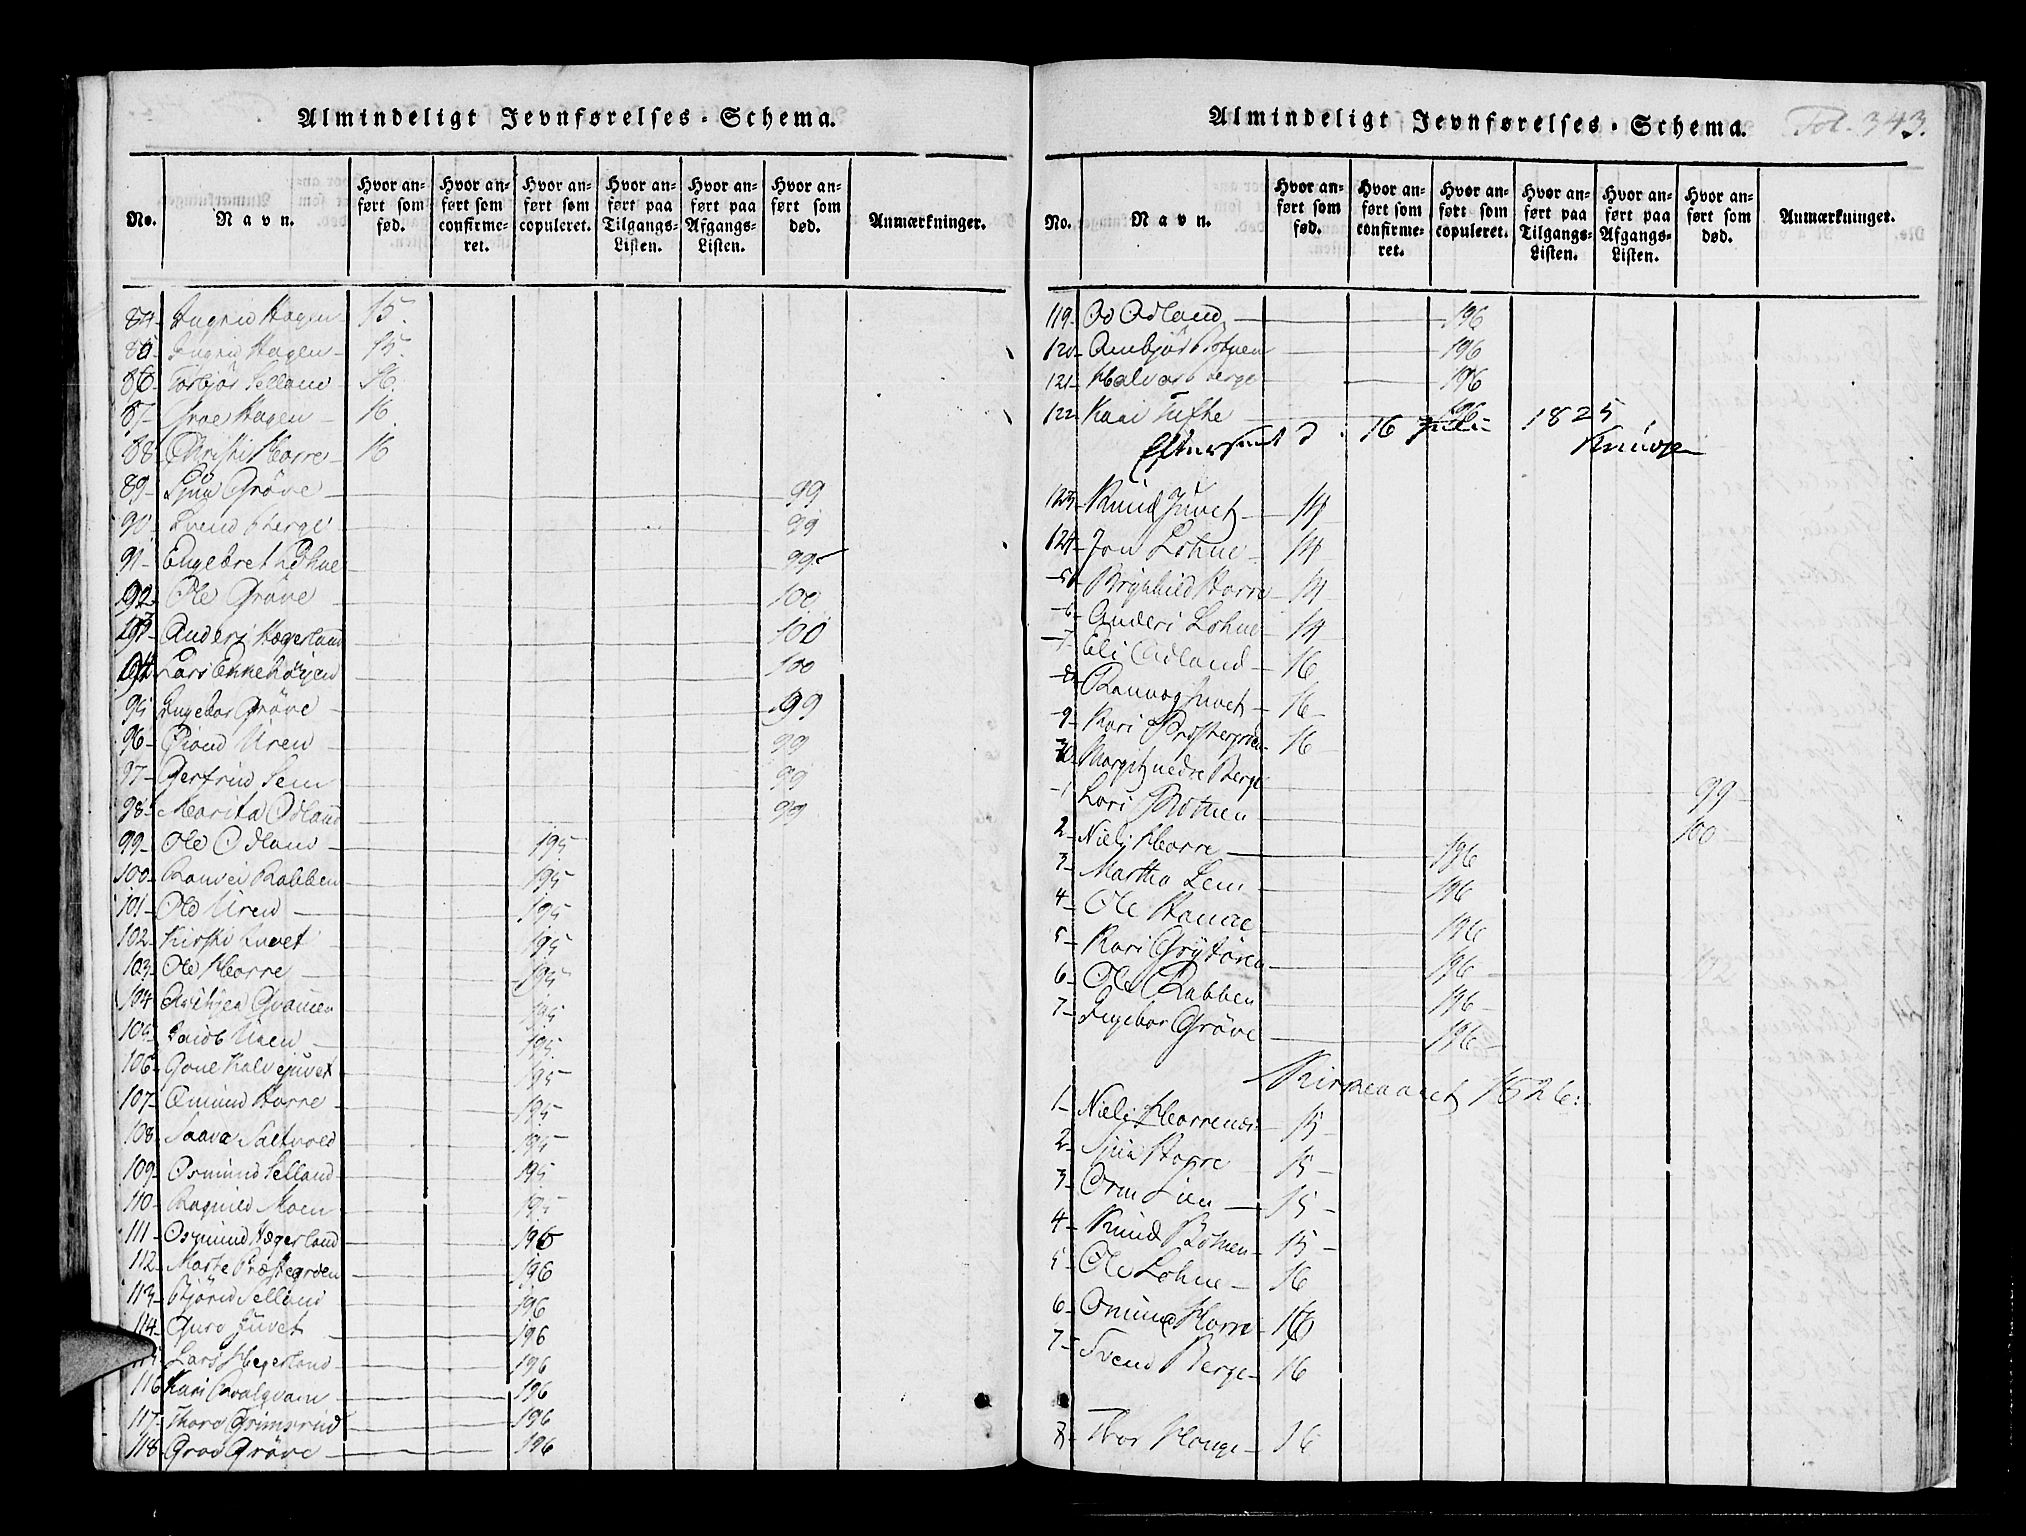 Almindeligt Jevnførelses-Schema.
No. Navn. Hvor anført som fød. Hvor anført som confirmeret. Hvor anført som copuleret. Hvor anført paa Tilgangs-Listen. Hvor anført paa Afgangs-Listen. Hvor anført som død. Anmærkninger.
84 Ingrid Hagen 15.
85 Ingrid Hagen 15.
86 Torbjør Selland 16.
87 Groe Hagen 16.
88 Christi Horre 16
89 Sjua Grøve 99
90 Svend Berge 99
91 Engebret Lohne 99
92 Ole Grøve 100
93 Anders Hægerland 100
94 Lars Enkehøyen 100
95 Ingebor Grøve 99
96 Giond Uren 99
97 Gertrud Sem 99
98 Marita Odland 99
99 Ole Odland 195
100 Ranvei Rabben 195
101 Ole Uren 195
102 Kirsti Juvet 195
103 Ole Horre 195
104 Qvamen 195
105 Uren 195
106 Gone Kalvejuvet 195
107 Omund Horre 195
108 Saava Saltvold 195
109 Osmund Selland 195
110 Ragnild Moen 195
111 Osmund Hægerland 196
112 Marte Præstegrden 196
113 Bjørn Selland 196
114 Guro Juvet 196
Lars Hegerland 196
116 Kari Qvalqvam 196
117 Thore Grimsrud 196
118 Groe Grøve 196
Almindeligt Jevnførelses-Schema. Fol. 343.
No. Navn. Hvor anført som fød. Hvor anført som confirmeret. Hvor anført som copuleret. Hvor anført paa Tilgangs-Listen. Hvor anført paa Afgangs-Listen. Hvor anført som død. Anmærkninger.
119 Od Odland 196
120 Anbjør Botnen 196
121 Halvor Berge 196
122 Kari Tufte 196
Efterseet d. 16 Juli 1825
123 Knud Juvet 14
124 Jon Lohne 14
5 Brynhild Horre 14
6 Anders Lohne 14
7 Eli Odland 16
8 Ranvog Juvet 16
9 Kari Prestegrden 16
30 Margit nedre Berge 99
1 Lars Botnen 100
2 Niels Horre 196
3 Martha Sem 196
4 Ole Hamre 196
5 Kari Grytøren 196
6 Ole Rabben 196
7 Ingebor Grøve 196
Kirkeaaret 1826:
1 Niels Horrenes 15
2 Sjua Horre 15
3 Orm Lien 15
4 Knud Botnen 15
5 Ole Lohne 16
6 Omund Horre 16
7 Svend Berge 16
8 Thor Hauge 16